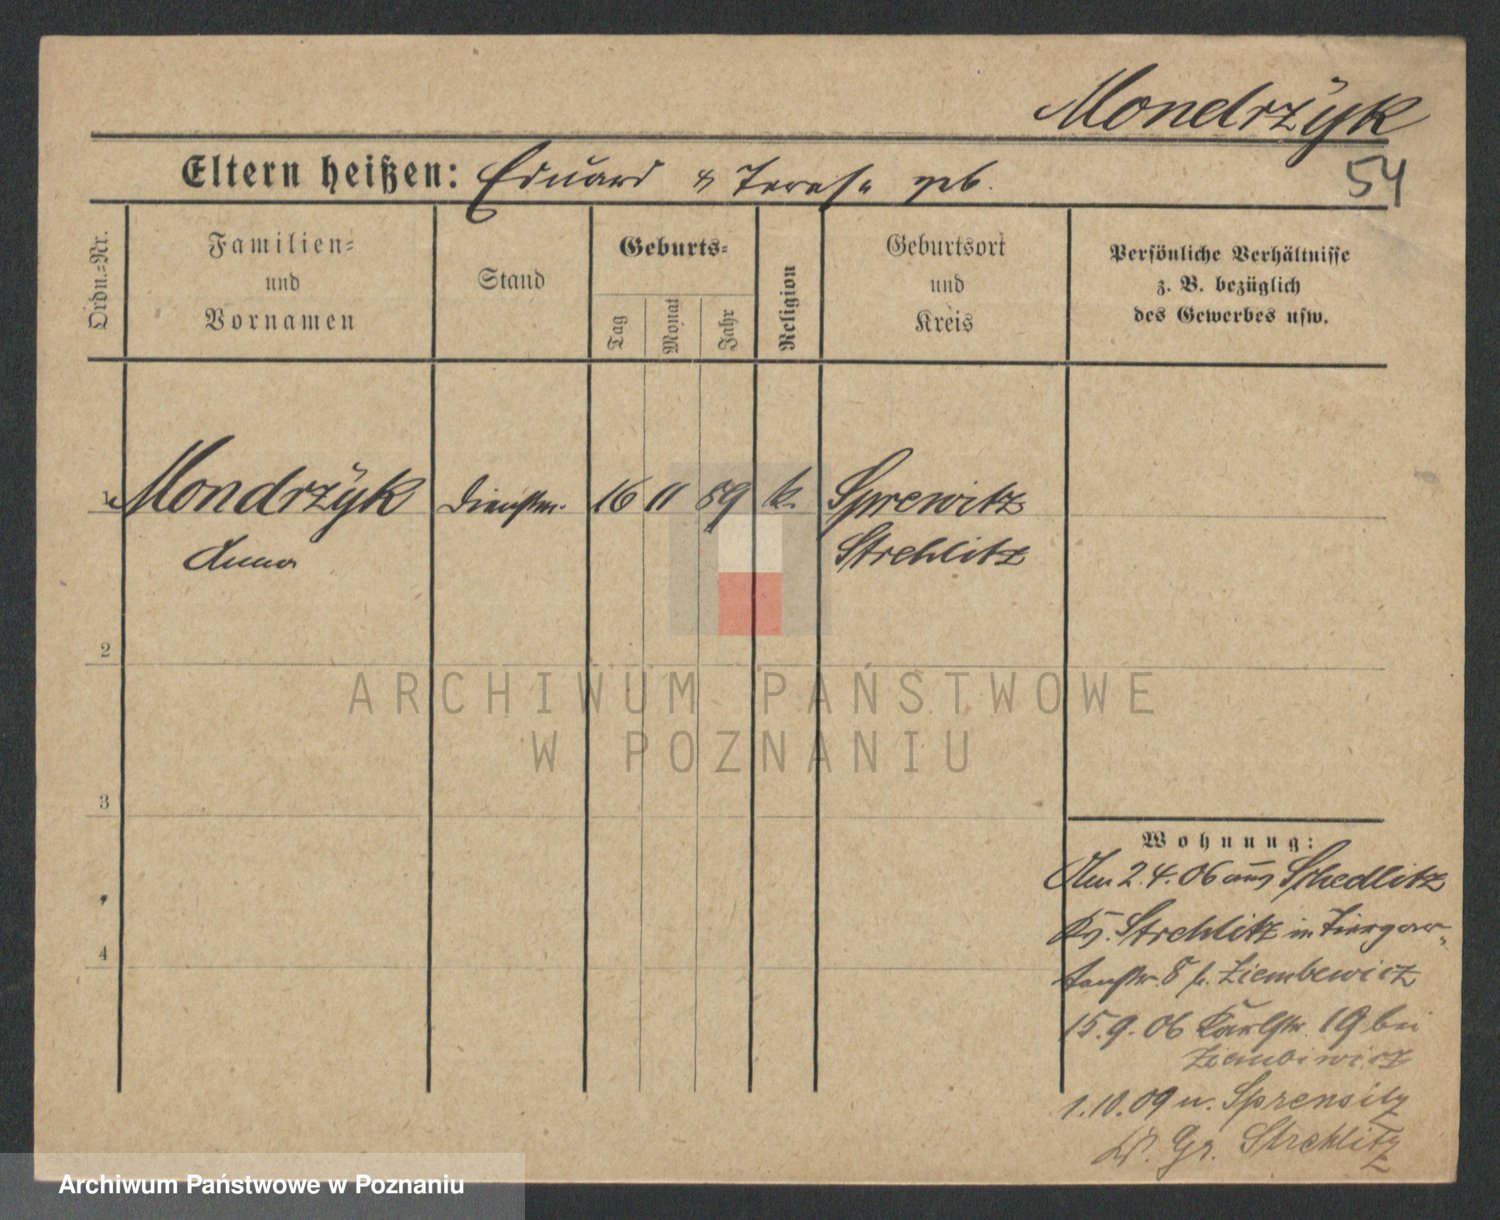 Mondrzÿk
54
Eltern heißen: Eduard & Terese geb.
Ordn.=Nr.
Familien=
und
Vornamen
Stand
Geburts=
Tag
Monat
Jahr
Religion
Geburtsort
und
Kreis
Persönliche Verhältnisse
z. B. bezüglich
des Gewerbes usw.
1 Mondrzÿk Dienstm. 16 11 89 k. Sprewitz
Anna Strehlitz
2
ARCHIWUM PAŃSTWOWE
W POZNANIU
3
Wohnung:
Am 2.4.06 aus Schedlitz
Kr. Strehlitz in Tiergar-
tenstr. 8 b. Ziembewicz
4
15.9.06 Karlstr. 19 bei
Ziembiewicz
1.10.09 n. Sprensitz
Kr. Gr. Strehlitz
Archiwum Państwowe w Poznaniu